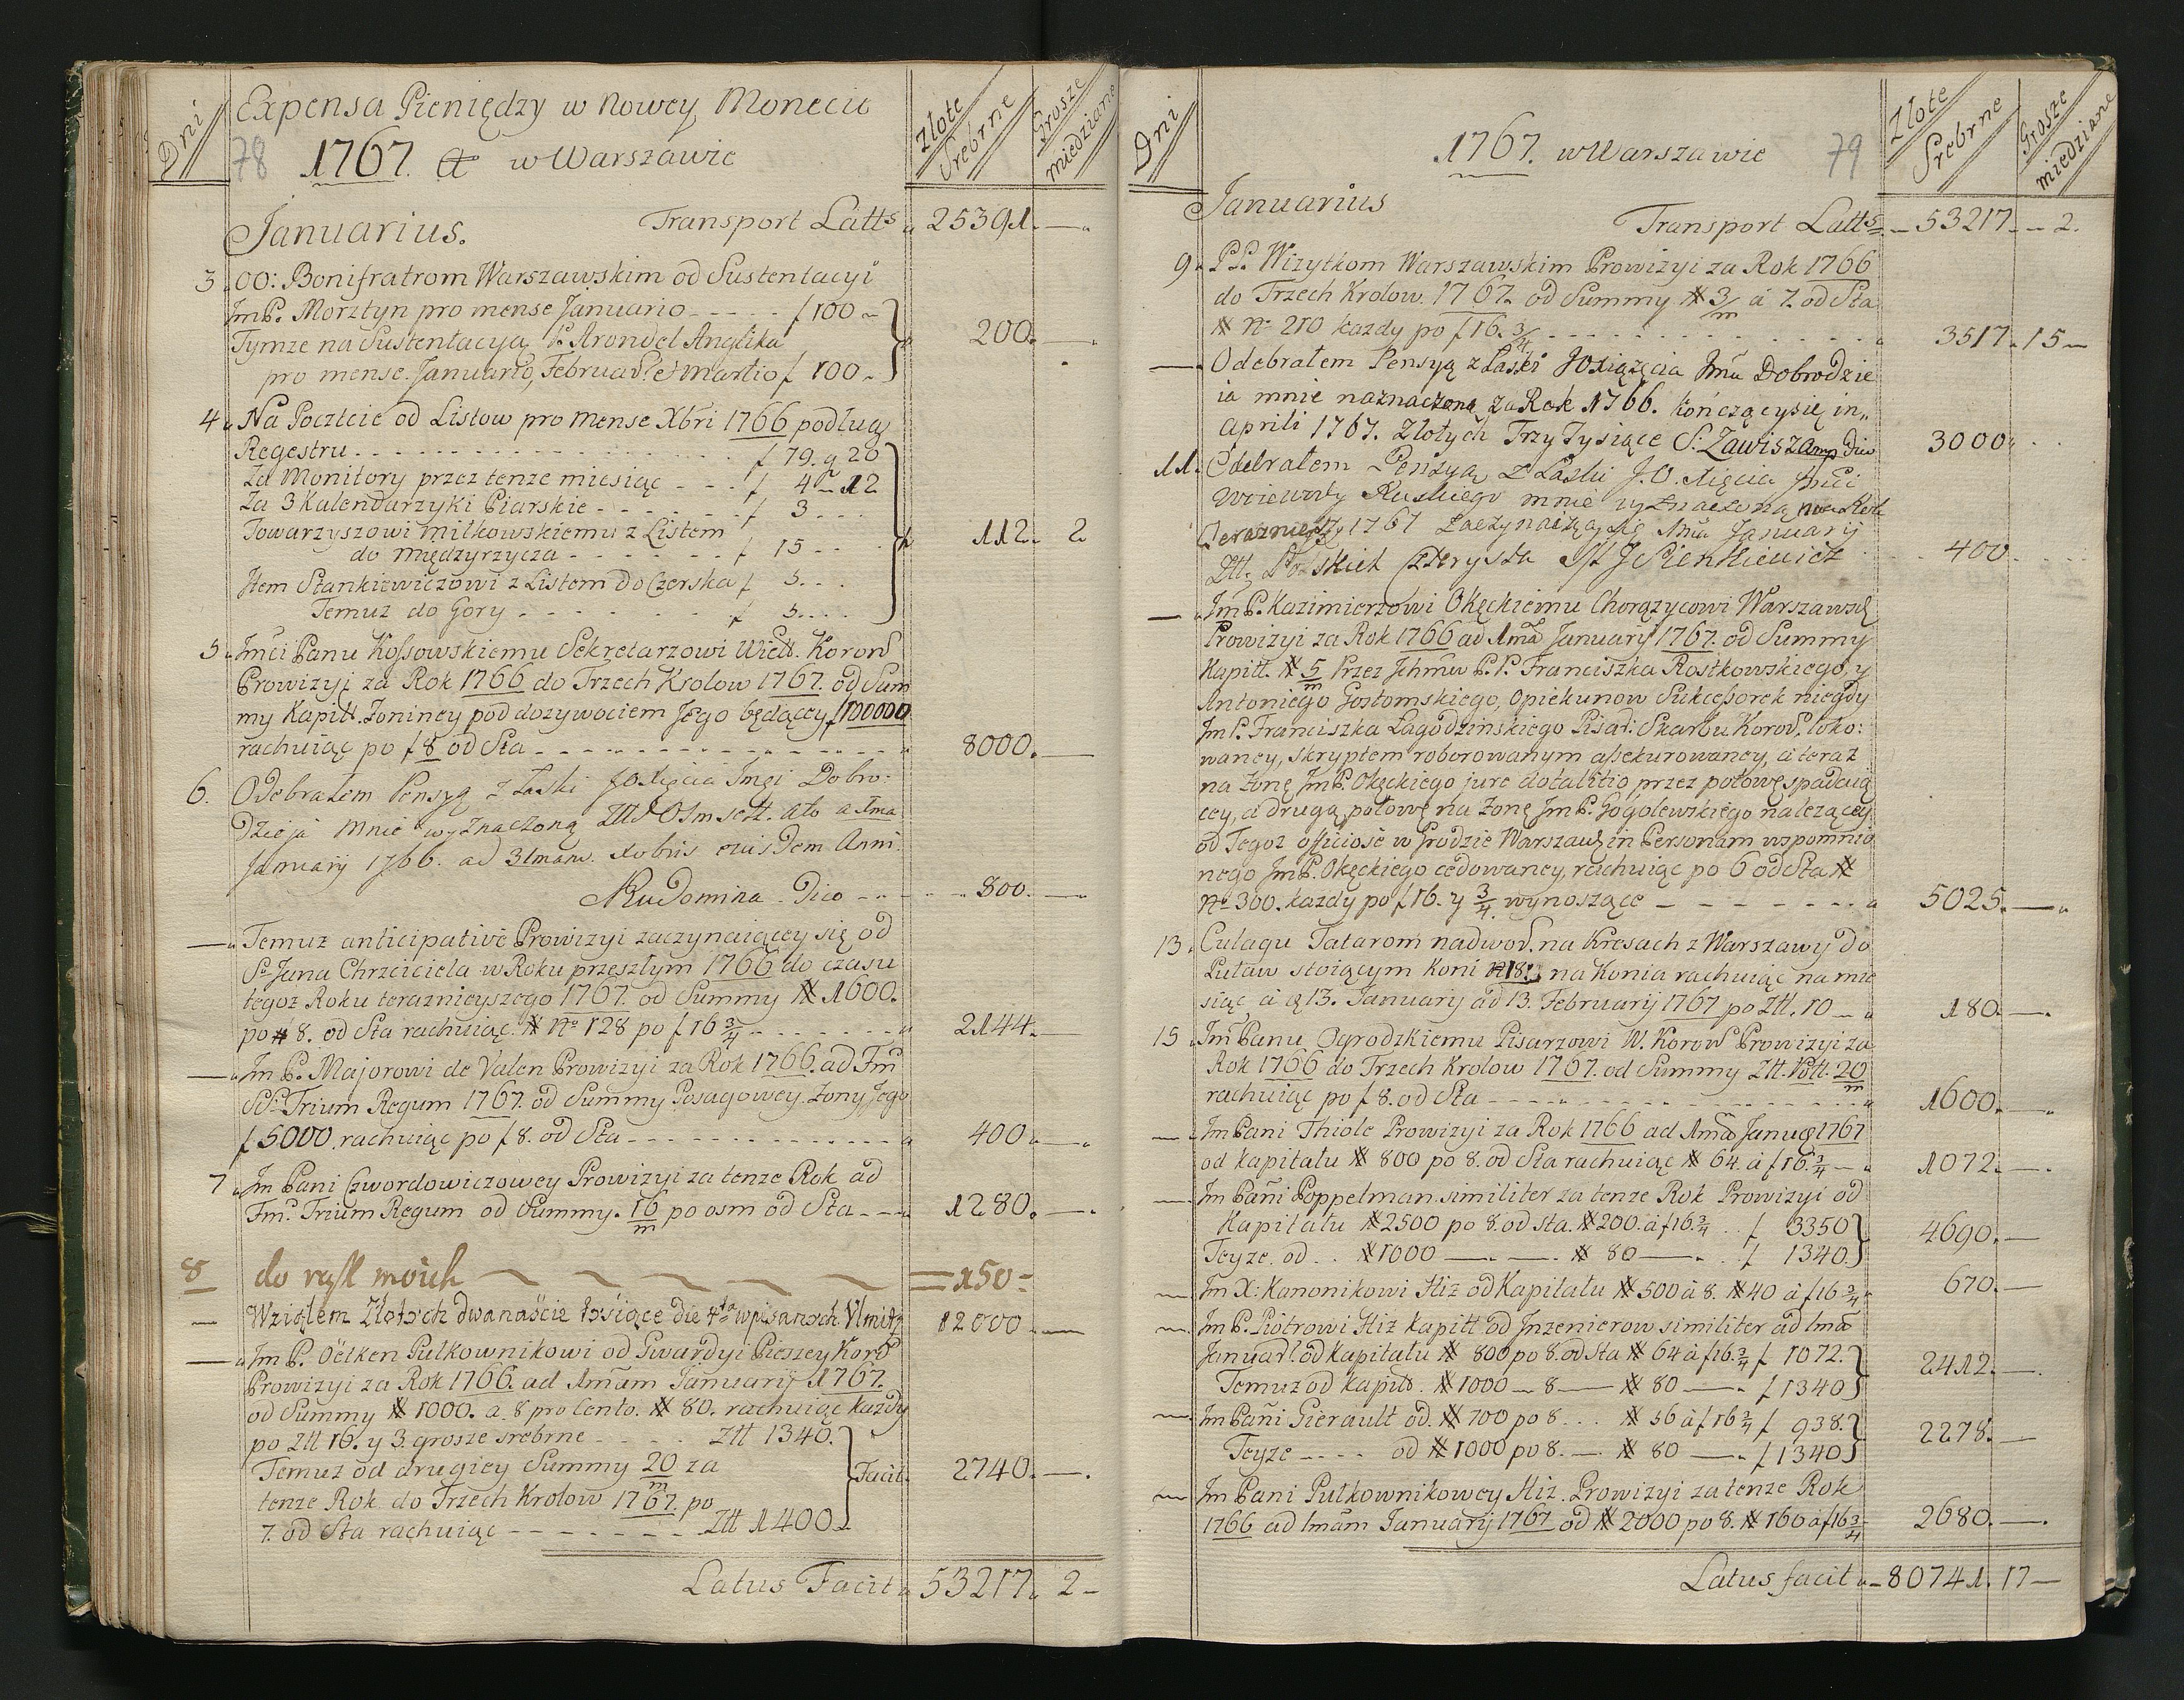 Dni
Expensa Pieniędzy w Nowey Monecie
78 1767. w Warszawie
Złote Srebrne
Grosze miedziane
Januarius. Transport Latts 25391.
3. OO: Bonifratrom Warszawskim od Sustentacyi
JmP. Morztyn pro mense Januario f 100
Tymze na Sustentacyą P. Arondel Anglika 200.
pro mense Januario, Februar. et Martio f 100
4. Na Poczcie od Listow pro Mense Xbri 1766 podług
Regestru f 79. g 20
Za Monitory przez tenze miesiąc f 4 12
Za 3 Kalendarzyki Piarskie f 3
Towarzyszowi Miłkowskiemu z Listem
do Międzyrzycza f 15 112. 2
Item Stankiewiczowi z Listem do Czerska f 5
Temuz do Gory f 5
5. Jmci Panu Kossowskiemu Sekretarzowi Wielk. Koron
Prowizyi za Rok 1766 do Trzech Krolow 1767. od Sum
my Kapitt. Zoniney pod dozywociem Jego będącey f 100000
rachuiąc po f 8 od Sta 8000.
6. Odebrałem Pensyą z Łaski JOXięcia Jmci Dobro:
dzieja mnie wyznaczoną Osmsett. a 1ma
January 1766. ad 31mam. Xobris eiusdem Anni
Rudomina. Dico 800.
Temuz anticipative Prowizyi zaczynaiącey się od
S. Jana Chrzciciela w Roku przeszłym 1766 do czasu
tegoz Roku teraznieyszego 1767. od Summy # 1600.
po # 8. od Sta rachuiąc # No 128 po f 16 3/4 2144.
Jm P. Majorowi de Valen Prowizyi za Rok 1766. ad Fm
Trium Regum 1767. od Summy Posagowey Zony Jego
f 5000. rachuiąc po f 8. od Sta 400.
7. Jm Pani Czwordowiczowey Prowizyi za tenze Rok ad
Fm. Trium Regum od Summy. 16/m po osm od Sta 1280.
8 do rąk moich 150
Wziąłem Złotych dwanaście tysiące die 4ta wpisanych 12000
Jm P. Oelken Pułkownikowi od Gwardyi Pieszey Kor
Prowizyi za Rok 1766. ad 1mam Januarij 1767.
od Summy # 1000. a 8 pro Cento. # 80. rachuiąc kazdy
po Ztt 16. y 3. grosze srebrne Ztt 1340.
Temuz od drugiey Summy 20/m za Facit 2740.
tenze Rok do Trzech Krolow 1767. po
7. od Sta rachuiąc Ztt 1400.
Latus Facit 53217. 2
Dni
1767. w Warszawie 79
Złote Srebrne
Grosze miedziane
Januarius
Transport Latts 53217. 2.
9. PP. Wizytkom Warszawskim Prowizyi za Rok 1766
do Trzech Krolow. 1767. od Summy # 3/m á 7. od Sta
# No 210 kazdy po f 16. 3/4 3517. 15
Odebrałem Pensyą z Łaski JOXiązęcia Jmći Dobrodzie
ia mnie naznaczoną za Rok 1766. kończącysię in,,
Aprili 1767. Złotych Trzy Tysiące S: Zawisza mp Dico 3000
11. Odebrałem Pensyą z Łaski J.O. Xięcia Jmći
Woiewody Ruskiego mnie wyznaczoną na Rok
1767 zaczynaiącą się Januarij
Ztt. Polskich czterysta J Sienkiewicz 400
JmP. Kazimierzowi Okęckiemu Chorązycowi Warszaws
Prowizyi za Rok 1766 ad 1ma Januarij 1767. od Summy
Kapitt. # 5/m Przez Jchmw P.P. Franciszka Rostkowskiego, y
Antoniego Gostomskiego, Opiekunow Sukcessorek niegdy
Jm P. Franciszka Łagodzinskiego Pisar: Skarbu Koron. loko:
waney, skryptem roborowanym assekurowaney, a teraz
na Zonę JmP. Okęckiego jure dotalitio, przez połowę spadaią
cey, a drugą połowę na Zonę JmP. Gogolewskiego nalezącey,
od Tegoz officiose w Grodzie Warszaw in Personam wspomnio
nego JmP. Okęckiego cedowaney, rachuiąc po 6 od Sta #
No 300. kazdy po f 16. y 3/4. wynoszące 5025.
13. Culagu Tatarom nadwor. na Kresach z Warszawy do
Puław stoiącym koni 18. na Konia rachuiąc na mie
siąc á 13. Januarij ad 13. Februarij 1767 po Ztt. 10 180.
15. Jm Panu Ogrodzkiemu Pisarzowi W. Koron Prowizyi za
Rok 1766 do Trzech Krolow 1767. od Summy Ztt. Poll. 20/m
rachuiąc po f 8. od Sta 1600.
Jm Pani Thiole Prowizyi za Rok 1766 ad 1ma Januar 1767
od kapitału # 800 po 8. od Sta rachuiąc # 64. á f 16. 3/4 1072.
Jm Pani Poppelman similiter za tenze Rok Prowizyi od
Kapitału # 2500 po 8. od sta. # 200. á f 16. 3/4 f 3350
Teyze. od # 1000 # 80 f 1340 4690.
Jm X: Kanonikowi Hiz od Kapitału # 500 á 8. # 40 á f 16 3/4 670.
Jm P. Piotrowi Hiz Kapitt. od Jnzenierow similiter ad 1ma
Januar. od kapitału # 800 po 8. od Sta # 64 á f 16. 3/4 f 1072.
Temuz od kapitt. # 1000 8 # 80 f 1340 2412.
Jm Pani Gierault od. # 700 po 8 # 56 á f 16 3/4 f 938.
Teyze od # 1000 po 8. # 80 f 1340 2278.
Jm Pani Pułkownikowey Hiz. Prowizyi za tenze Rok
1766 ad 1mam Januarij 1767 od # 2000 po 8. # 160 á f 16 3/4 2680.
Latus facit 80741. 17